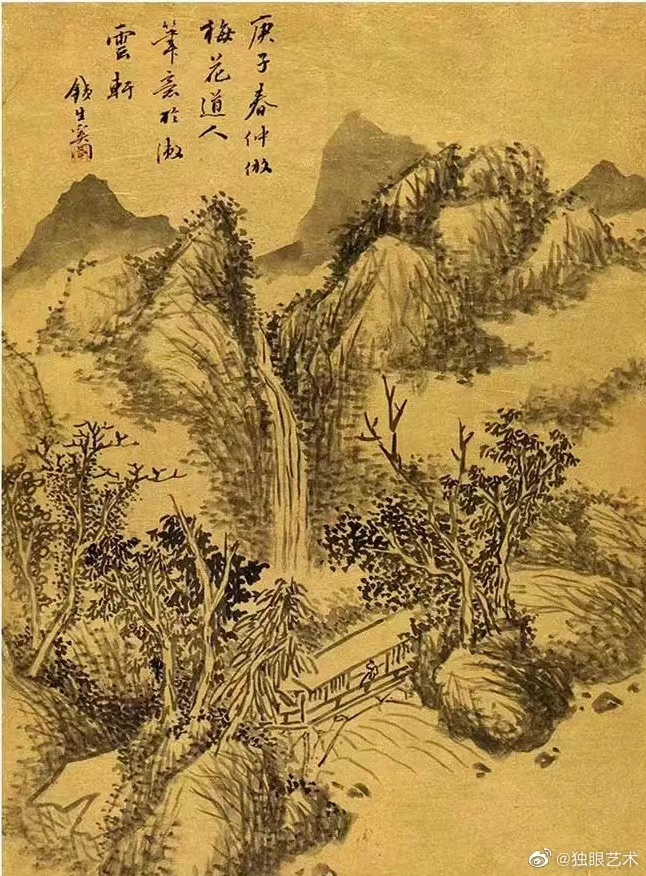 庚子春仲倣
梅花道人
筆意於漱
雲軒
鐵生奚岡
@独眼艺术